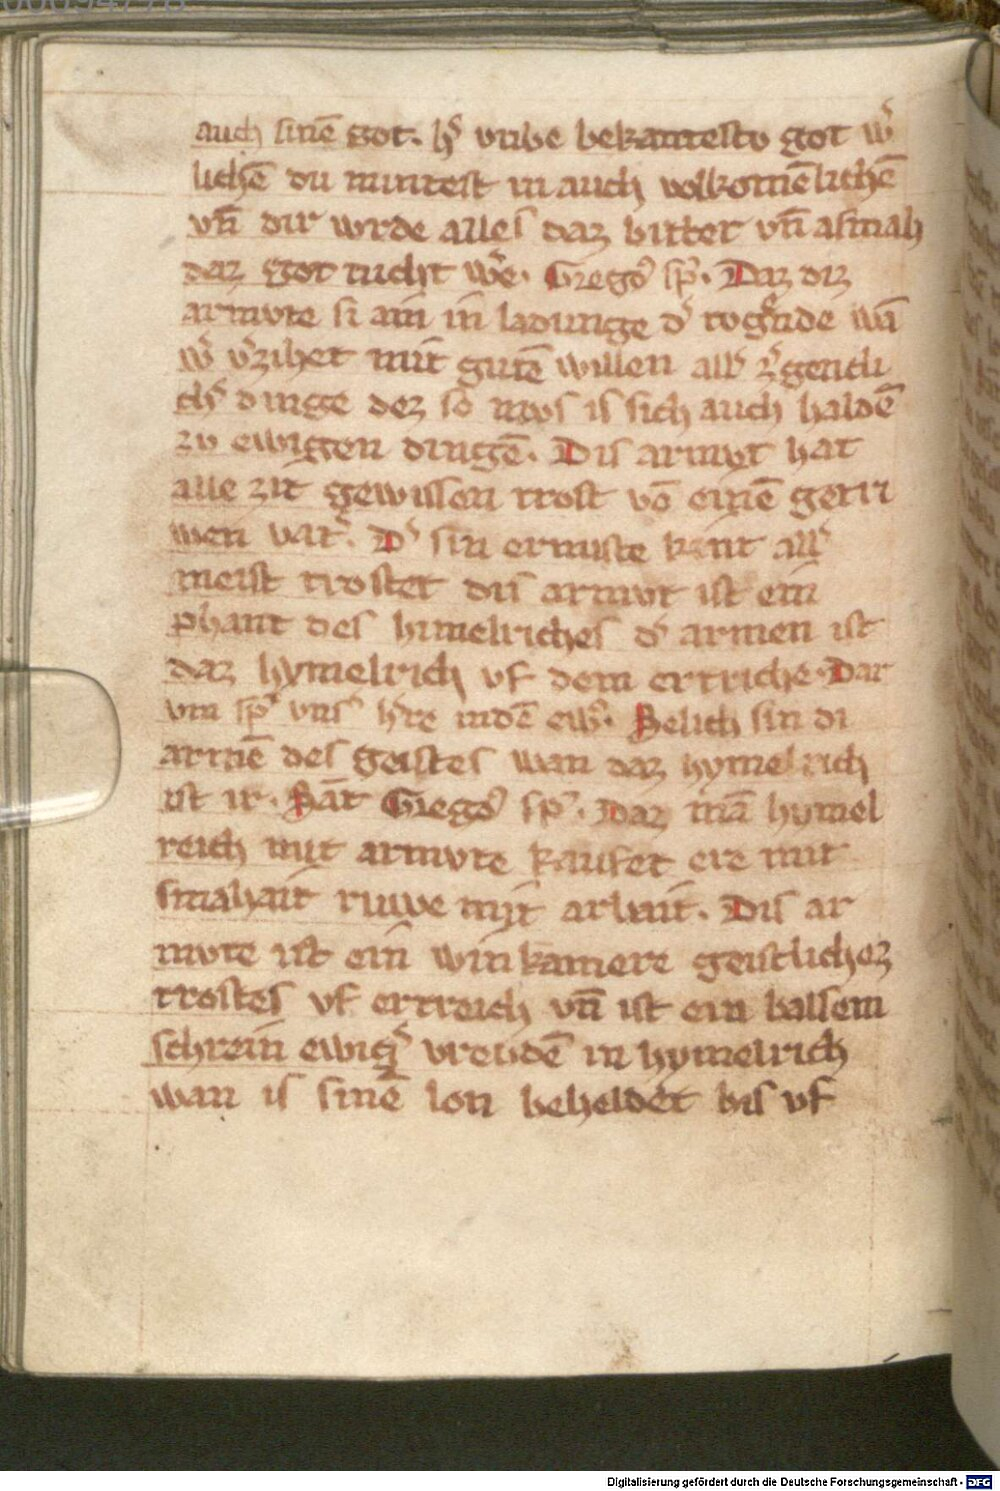 auch sinē got. hˢ vnbe bekantestv got wˢ
lichē du mintest in auch volkomēlichē
vn̄ dir wrde alles daz bitter vn̄ asmah
daz got nicht wˢe. Gregoˢ spˢ. Daz diz
armvte si ain in ladunge dˢ togˢnde wā
wˢ vˢzihet mit gutē willen allˢ zˢgencli
chˢ dinge dez so mvs is sich auch haldē
zv ewigen dingē. Dis armvt hat
alle zit gewissen trost vō einē getri
wen vatˢ. Dˢ sin ermiste kint allˢ
meist trostet dis armvt ist ein
phant des himelriches dˢ armen ist
daz hymelrich vf dem ertriche. Dar
vm spˢ vnsˢ hˢre indē ewˢ. Selich sin di
armē des geistes wan daz hymelrich
ist ir. Sāt Gregoˢ spˢ. Daz mā hymel
reich mit armvte kaufet ere mit
smahait ruwe mit arbait. Dis ar
mvte ist ein winkamere geistlichez
trostes vf ertreich vn̄ ist ein balsem
schrein ewigˢ vreudē in hymelrich
wan is sinē lon beheldet bis vf
Digitalisierung gefördert durch die Deutsche Forschungsgemeinschaft - DFG